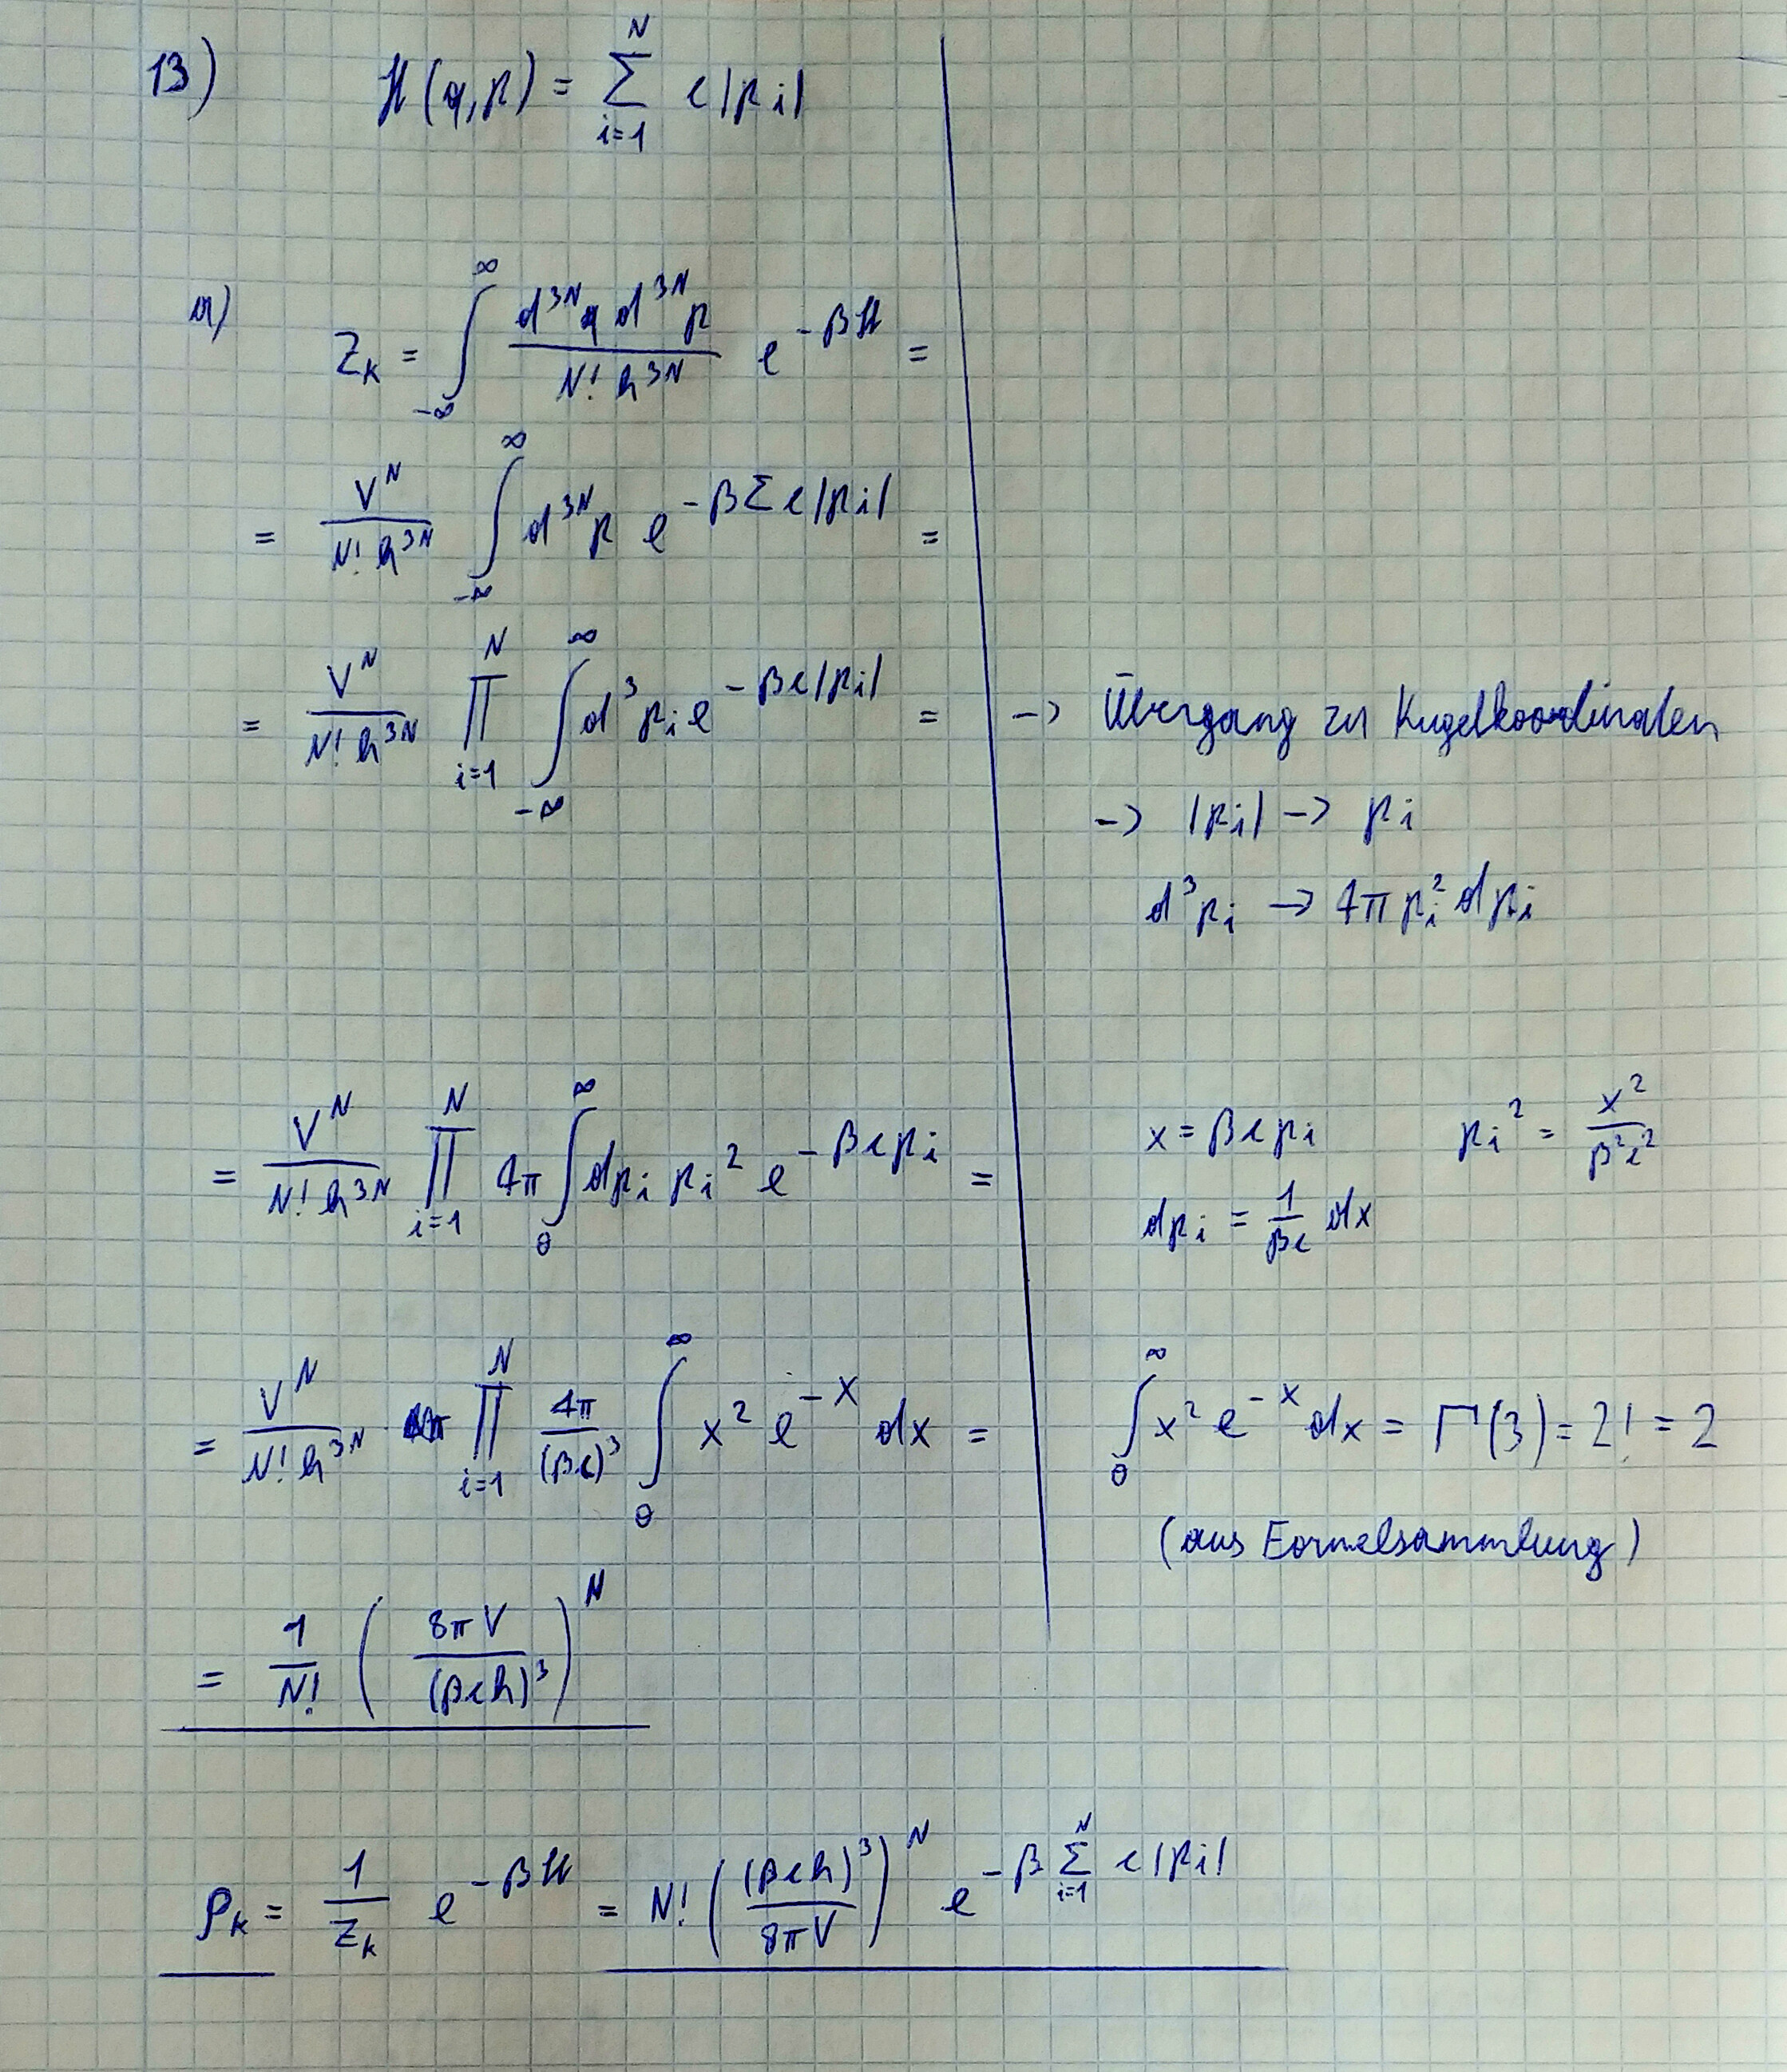 13) H(q,p) = ∑_{i=1}^{N} c|p_i|
a) Z_k = ∫_{-∞}^{∞} \frac{d^{3N}q d^{3N}p}{N! h^{3N}} e^{-βH} =
= \frac{V^N}{N! h^{3N}} ∫_{-∞}^{∞} d^{3N}p e^{-β∑c|p_i|} =
= \frac{V^N}{N! h^{3N}} ∏_{i=1}^{N} ∫_{-∞}^{∞} d^3p_i e^{-βc|p_i|} = -> Übergang zu Kugelkoordinaten
-> |p_i| -> p_i
d^3p_i -> 4π p_i^2 dp_i
= \frac{V^N}{N! h^{3N}} ∏_{i=1}^{N} 4π ∫_0^{∞} dp_i p_i^2 e^{-βcp_i} = x = βcp_i p_i^2 = \frac{x^2}{β^2c^2}
dp_i = \frac{1}{βc} dx
= \frac{V^N}{N! h^{3N}} ∏_{i=1}^{N} \frac{4π}{(βc)^3} ∫_0^{∞} x^2 e^{-x} dx = ∫_0^{∞} x^2 e^{-x} dx = Γ(3) = 2! = 2
(aus Formelsammlung)
= \frac{1}{N!} (\frac{8πV}{(βch)^3})^N
ρ_k = \frac{1}{Z_k} e^{-βH} = N! (\frac{(βch)^3}{8πV})^N e^{-β∑_{i=1}^{N} c|p_i|}